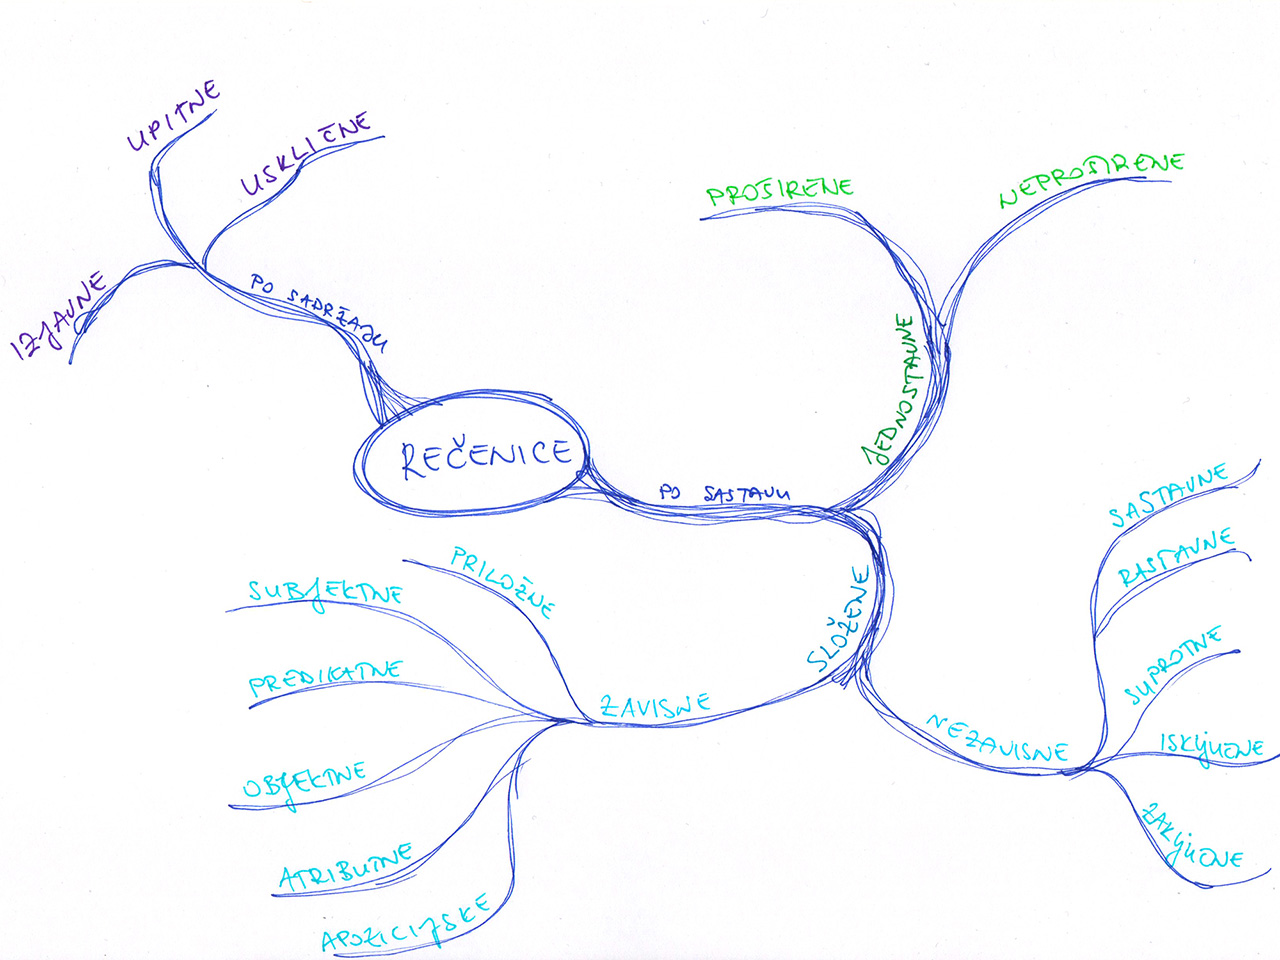 UPITNE
USKLIČNE
IZJAVNE
PO SADRŽAJU
REČENICE
PO SASTAVU
PROŠIRENE
NEPROŠIRENE
JEDNOSTAVNE
SLOŽENE
ZAVISNE
PRILOŽNE
SUBJEKTNE
PREDIKATNE
OBJEKTNE
ATRIBUTNE
APOZICIJSKE
NEZAVISNE
SASTAVNE
RASTAVNE
SUPROTNE
ISKLJUČNE
ZAKLJUČNE